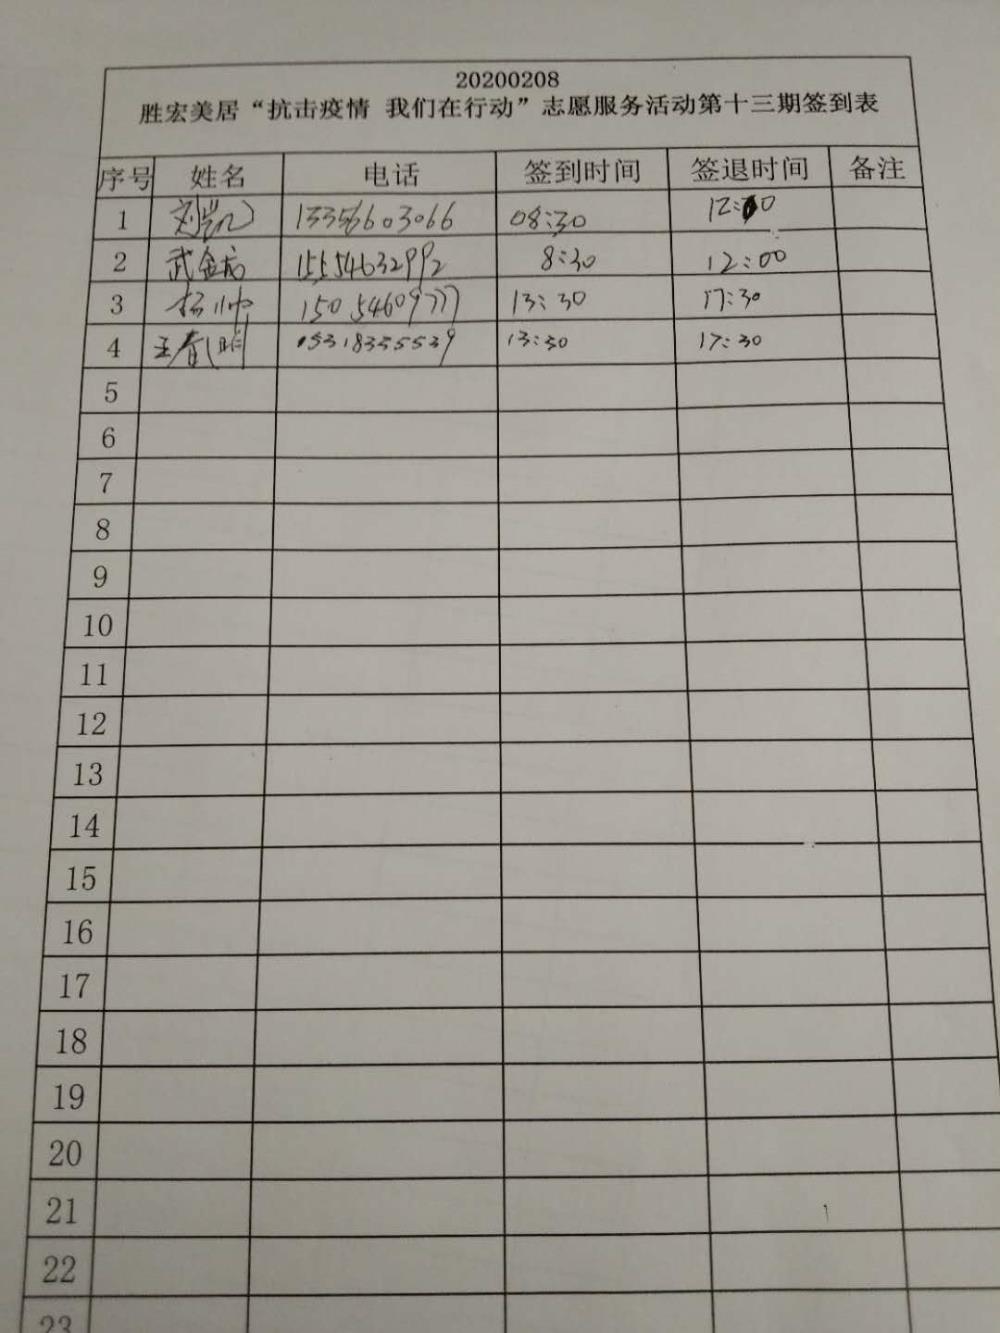 20200208
胜宏美居“抗击疫情 我们在行动”志愿服务活动第十三期签到表
序号 姓名 电话 签到时间 签退时间 备注
1 刘凯 13356603066 08:30 12:00
2 武金 15554632992 8:30 12:00
3 杨帅 15054609777 13:30 17:30
4 王春明 13:30 17:30
5
6
7
8
9
10
11
12
13
14
15
16
17
18
19
20
21
22
23